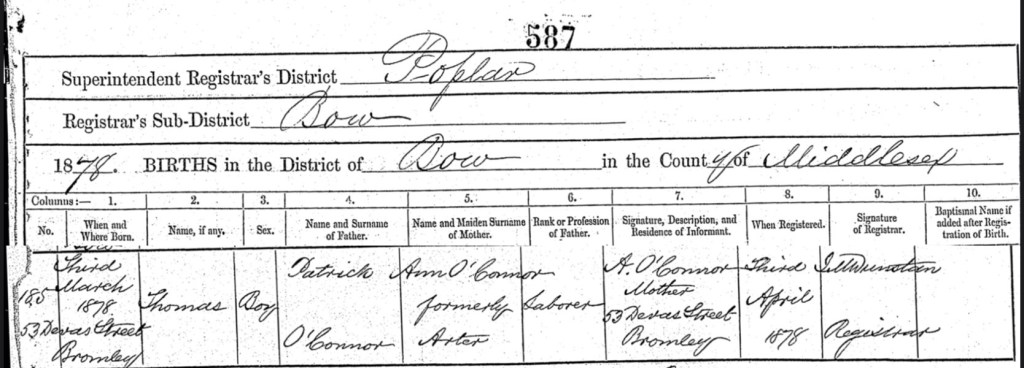 587
Superintendent Registrar's District Poplar
Registrar's Sub-District Bow
1878. BIRTHS in the District of Bow in the County of Middlesex
Columns:— 1. 2. 3. 4. 5. 6. 7. 8. 9. 10.
No. When and Where Born. Name, if any. Sex. Name and Surname of Father. Name and Maiden Surname of Mother. Rank or Profession of Father. Signature, Description, and Residence of Informant. When Registered. Signature of Registrar. Baptismal Name if added after Registration of Birth.
185
Third
March
1878
53 Devas Street
Bromley
Thomas
Boy
Patrick
O'Connor
Ann O'Connor
formerly
Arter
Laborer
A. O'Connor
Mother
53 Devas Street
Bromley
Third
April
1878
Registrar